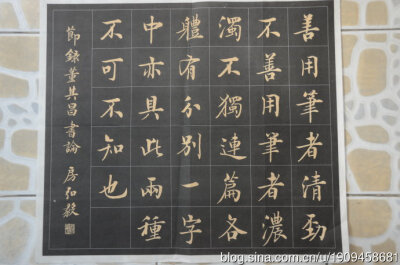 善用筆者清勁
不善用筆者濃
濁不獨連篇各
體有分別一字
中亦具此兩種
不可不知也
節錄董其昌書論 房弘毅
blog.sina.com.cn/u/1909458681